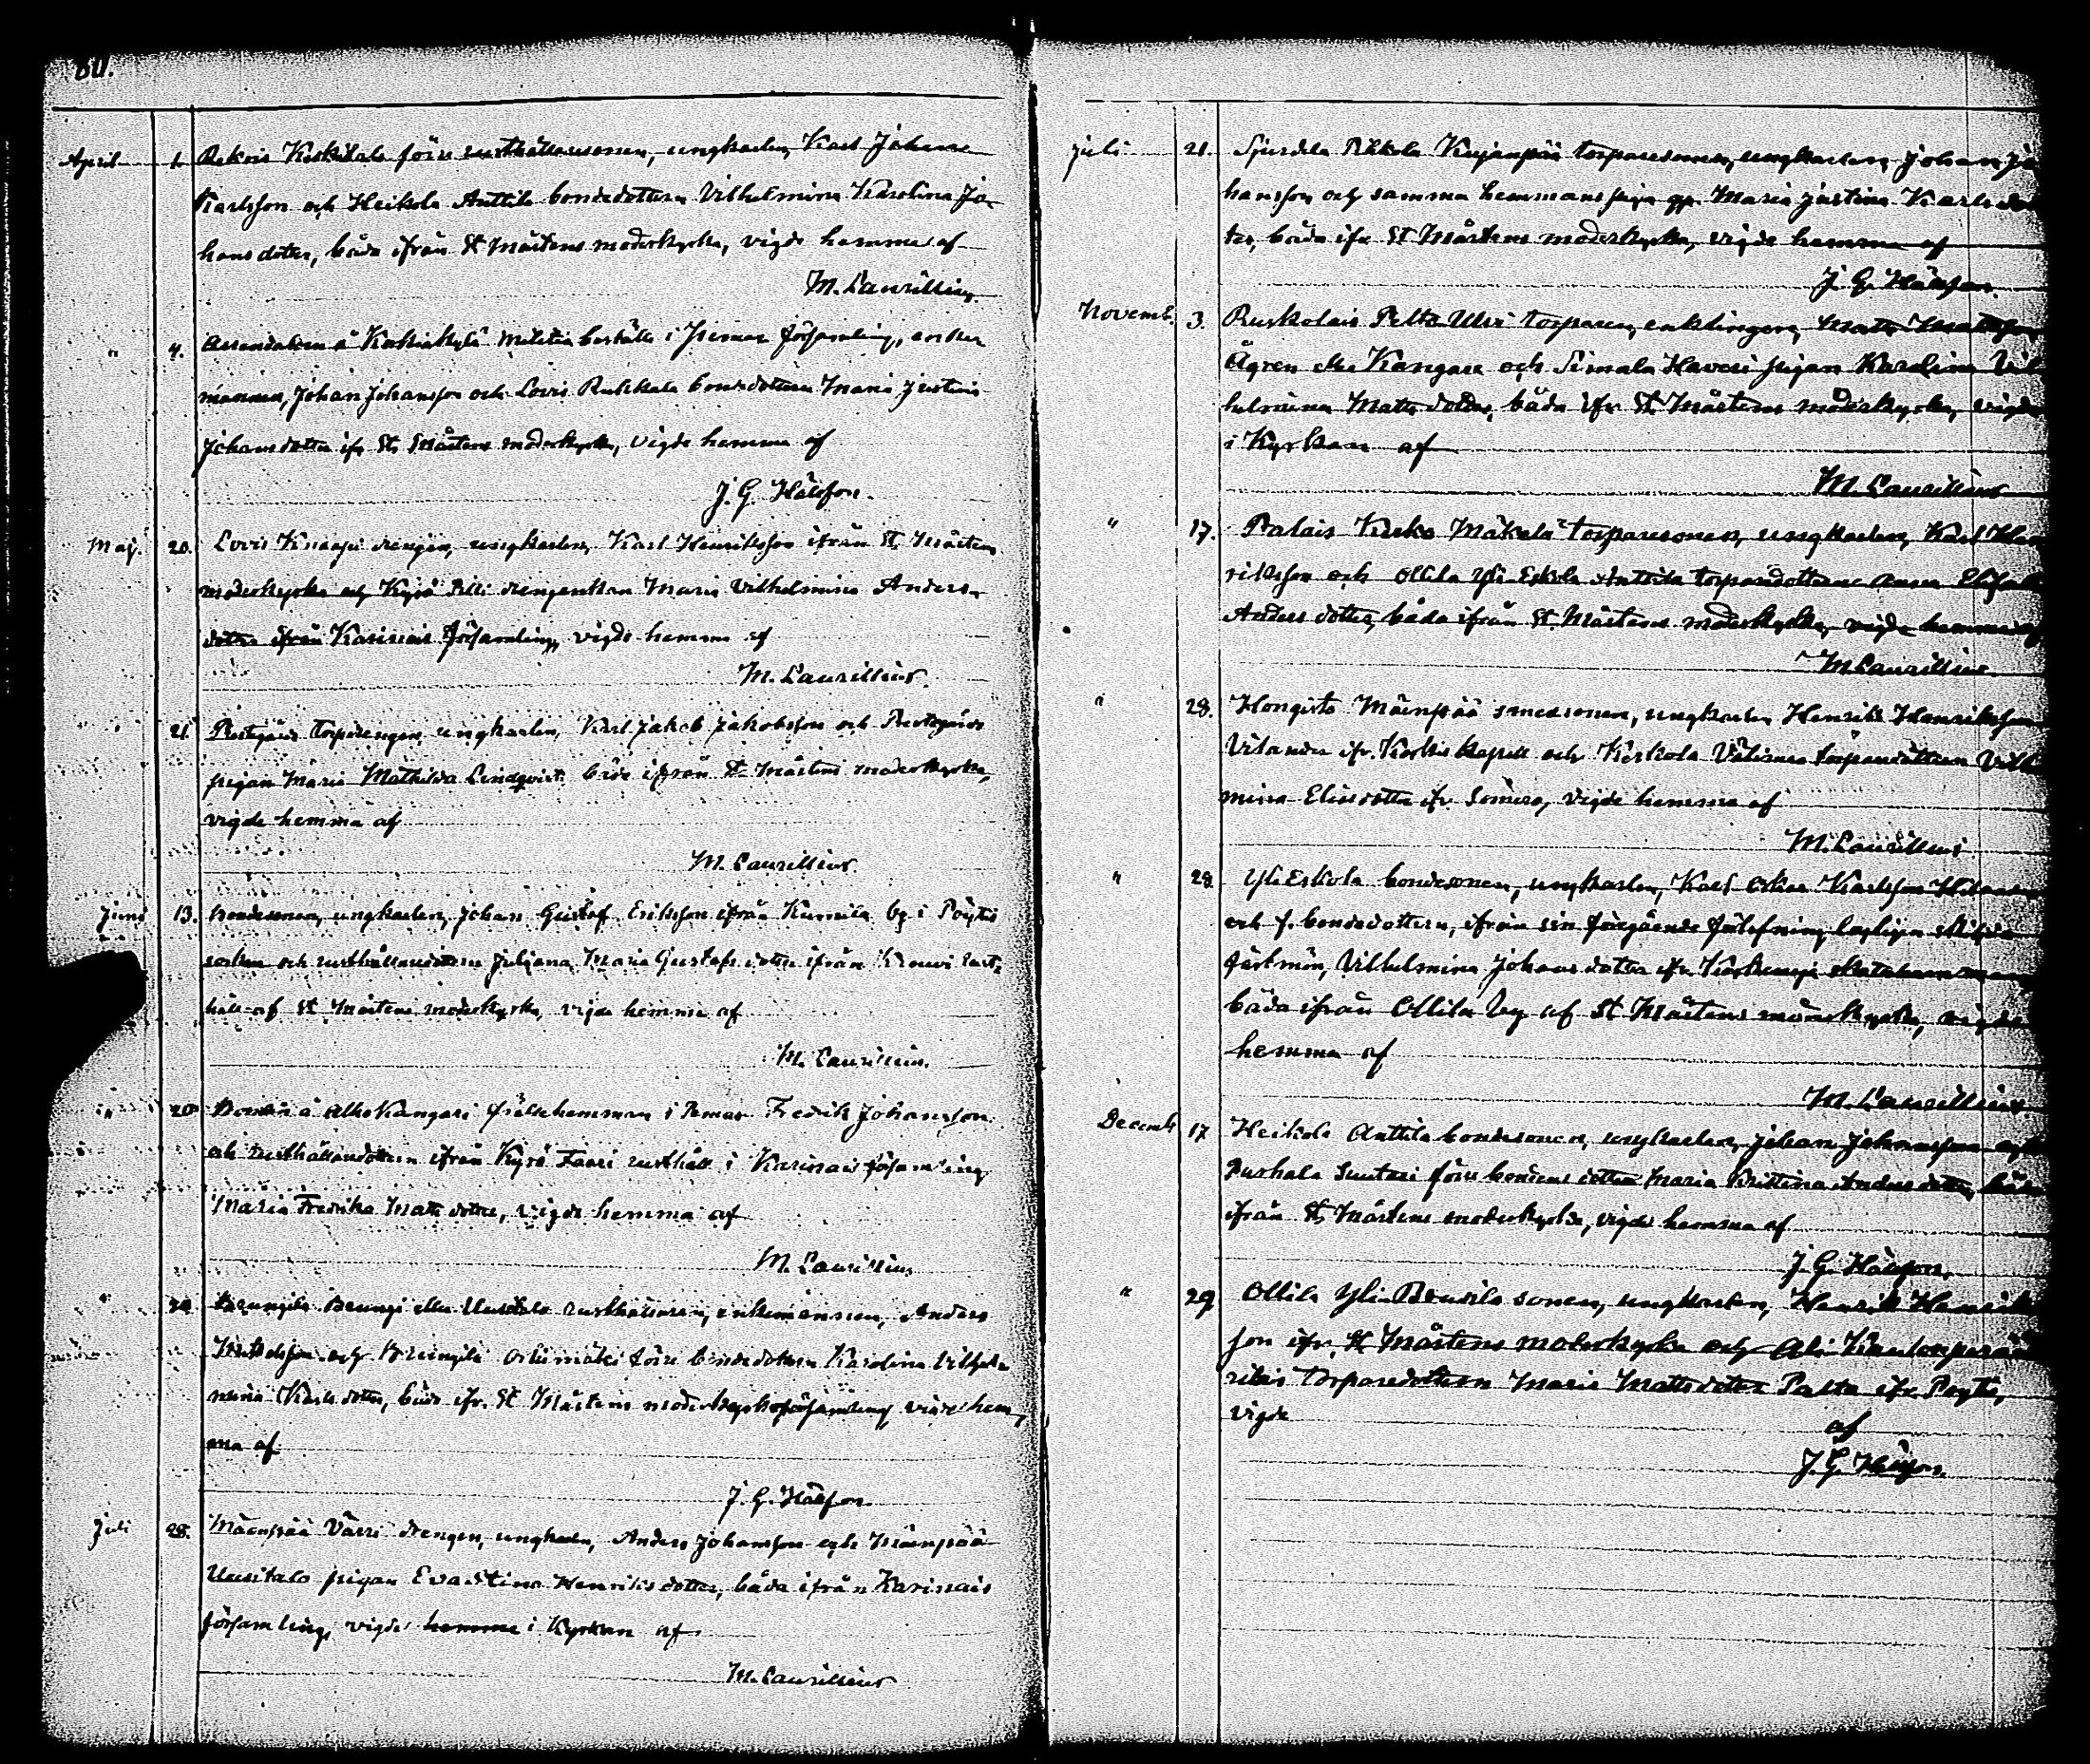 80.
April 1. Rekois Keskitalo förre rusthållaresonen, ungkarlen, Karl Johan
Karlsson och Heikola Anttila bondedottern Vilhelmina Karolina Jo-
hansdotter, båda ifrån St Mårtens moderkyrka, vigde hemma af
M. Laurellius.
" 4. Arrendatorn å militiæ boställe i församling, enke
mannen, Johan Johansson och Lovis bondedottern Maria Justina
Johansdotter ifr. St. Mårtens moderkyrka, vigde hemma af
J. G. Hälsson.
Maj. 20. Lovis Knaapi drengen, ungkarlen, Karl Henriksson ifrån St. Mårtens
moderkyrka och Kyrö drengenkan Maria Vilhelmina Anders-
dotter ifrån Karinais församling, vigde hemma af
M. Laurellius.
" 21. Prestgårds torpdrengen ungkarlen, Karl Jakob Jakobsson och Prestgårds
pigan Maria Mathilda Lindqvist båda ifrån St Mårtens moderkyrka,
vigde hemma af
M. Laurellius.
Juni 13. Bondesonen, ungkarlen, Johan Gustaf Eriksson ifrån Kumila by i Pöytis
socken och rusthållaredottern Juliana Maria Gustafsdotter ifrån Krouvi rust-
håll af St Mårtens moderkyrka, vigde hemma af
M. Laurellius.
" 20 Bonden å Alho Kangari frälsehemman i Pemar Fredrik Johansson
och rusthållaredottern ifrån Kyrö Taari rusthåll i Karinais församling
Maria Fredrika Mattsdotter, vigde hemma af
M. Laurellius
" Brungila Brungi eller Uusitalo rusthållaren, enkemannen, Anders
och Brungila förre bondedottern Karolina Vilhel-
mina Karlsdotter, båda ifr. St Mårtens moderkyrkoförsamling vigde hem-
ma af
J. G. Hälsson
Juli 28. Mäenpää Värri drengen, ungkarlen, Anders Johansson och Mäenpää
Uusitalo pigan Eva Stina Henriksdotter, båda ifrån Karinais
församling, vigde hemma i Kyrkan af
M. Laurellius
Juli 21. Sjurdila Pikkola Kujanpää torparesonen, ungkarlen, Johan Jo
hansson och samma hemmans piga Maria Justina Karlsdot
ter, båda ifr. St Mårtens moderkyrka, vigde hemma af
J. G. Hälsson.
Novemb. 3. Ruskolais Pelto Ulvi torparen, enklingen, Matts Mattsson
Ågren eller Kangare och Simala Haveri pigan Karolina Vil
helmina Mattsdotter, båda ifr. St. Mårtens moderkyrka, vigde
i Kyrkan af
M. Laurellius
" 17. Palais Kurko Mäkelä torparesonen, ungkarlen, Karl Hen
riksson och Ollila Yli Eskola Anttila torparedottern Anna Elisab
Andersdotter, båda ifrån St. Mårtens moderkyrka, vigde hemma af
M. Laurellius.
" 28. Hongisto Mäenpää smedsonen, ungkarlen Henrik Henriksson
Vilander ifr. Koskis kapell och Kerkola torparedottern Vilh
mina Eliasdotter ifr. Somero, vigde hemma af
M. Laurellius
" 28 Yli Eskola bondesonen, ungkarlen, Karl Oskar Karlsson
och f. bondedottern, ifrån sin föregående fästman lagligen skilda
fästmön, Vilhelmina Johansdotter ifr.
båda ifrån Ollila by af St Mårtens moderkyrka, vigde
hemma af
M. Laurellius
Decemb 17 Heikola Anttila bondesonen, ungkarlen, Johan Johansson och
Suutari förre bondens dotter Maria Kristina Andersdotter, båda
ifrån St. Mårtens moderkyrka, vigde hemma af
J. G. Hälsson.
" 29 Ollila Yli Brusila sonen, ungkarlen, Henrik Henriks
son ifr. St Mårtens moderkyrka och
torparedottern Maria Mattsdotter Palta ifr. Pöytis,
vigde
af
J. G. Hälsson.